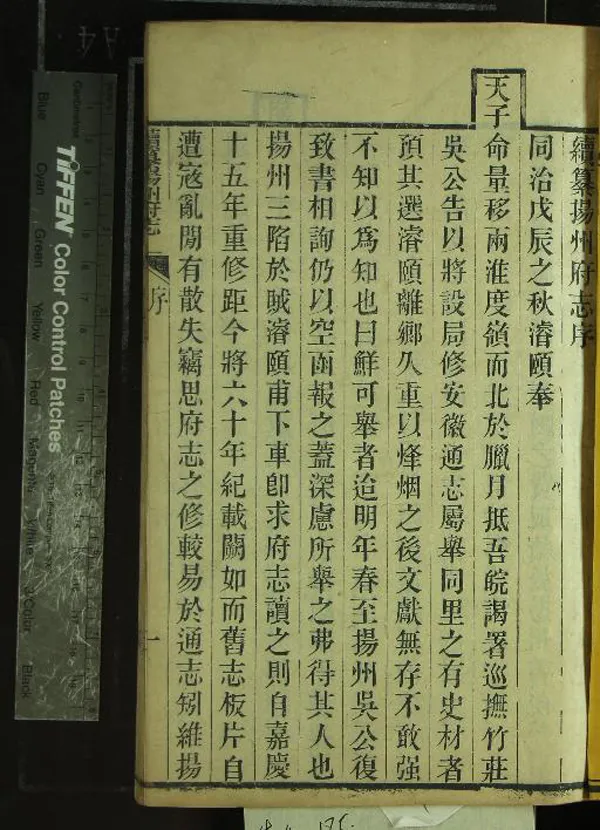 續纂揚州府志序
同治戊辰之秋濬頤奉
天子命量移兩淮度嶺而北於臘月抵吾皖謁署巡撫竹莊
吳公告以將設局修安徽通志屬舉同里之有史材者
預其選濬頤離鄉久重以烽烟之後文獻無存不敢强
不知以爲知也曰鮮可舉者迨明年春至揚州吳公復
致書相詢仍以空函報之蓋深慮所舉之弗得其人也
揚州三陷於賊濬頤甫下車卽求府志讀之則自嘉慶
十五年重修距今將六十年紀載闕如而舊志板片自
遭寇亂閒有散失竊思府志之修較易於通志矧維揚
續纂揚州府志
序
一
A4
TIFFEN Color Control Patches
Blue
Cyan
Green
Yellow
Red
Magenta
White
3/Color
Black
Centimetres